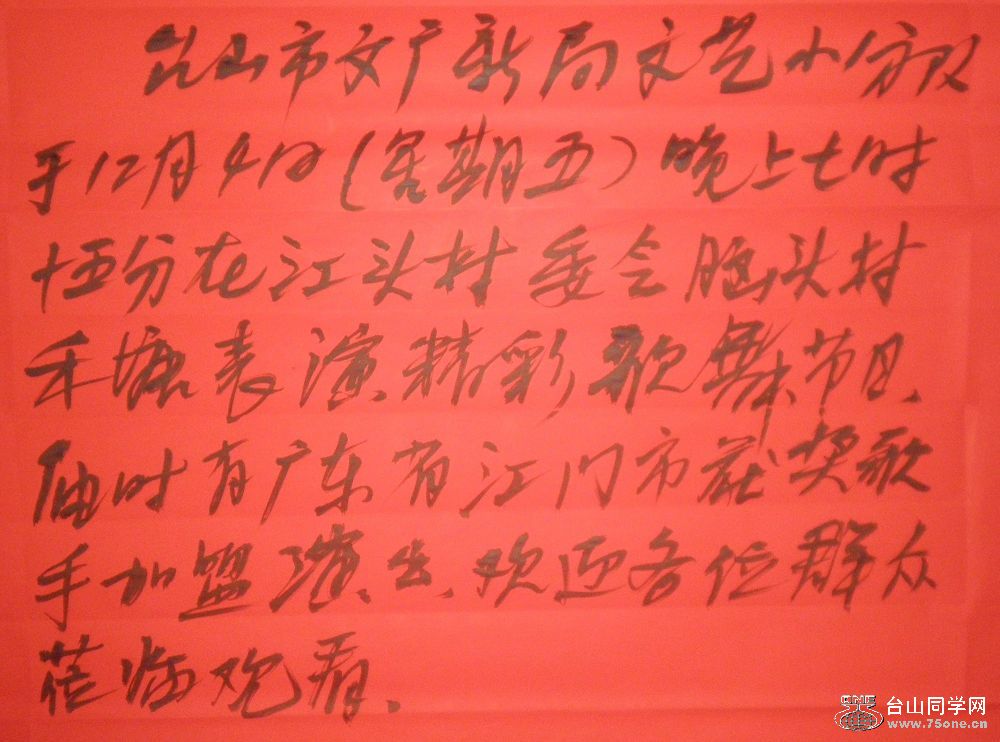 台山市文广新局文艺小分队
于12月4日(星期五)晚上七时
十五分在江头村委会脑头村
禾塘表演精彩歌舞节目、
届时有广东省江门市获奖歌
手加盟演出、欢迎各位群众
莅临观看、
台山同学网
www.75one.cn